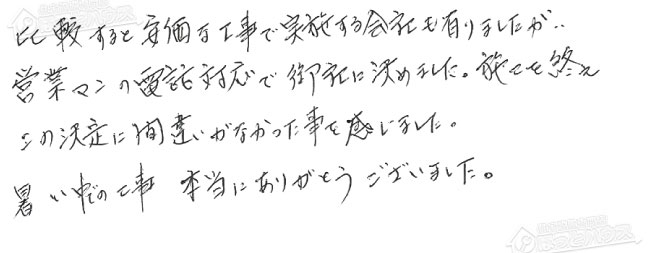 比較すると安価な工事で実施する会社も有りましたが、
営業マンの電話対応で御社に決めました。施工を終え
この決定に間違いがなかった事を感じました。
暑い中での工事 本当にありがとうございました。